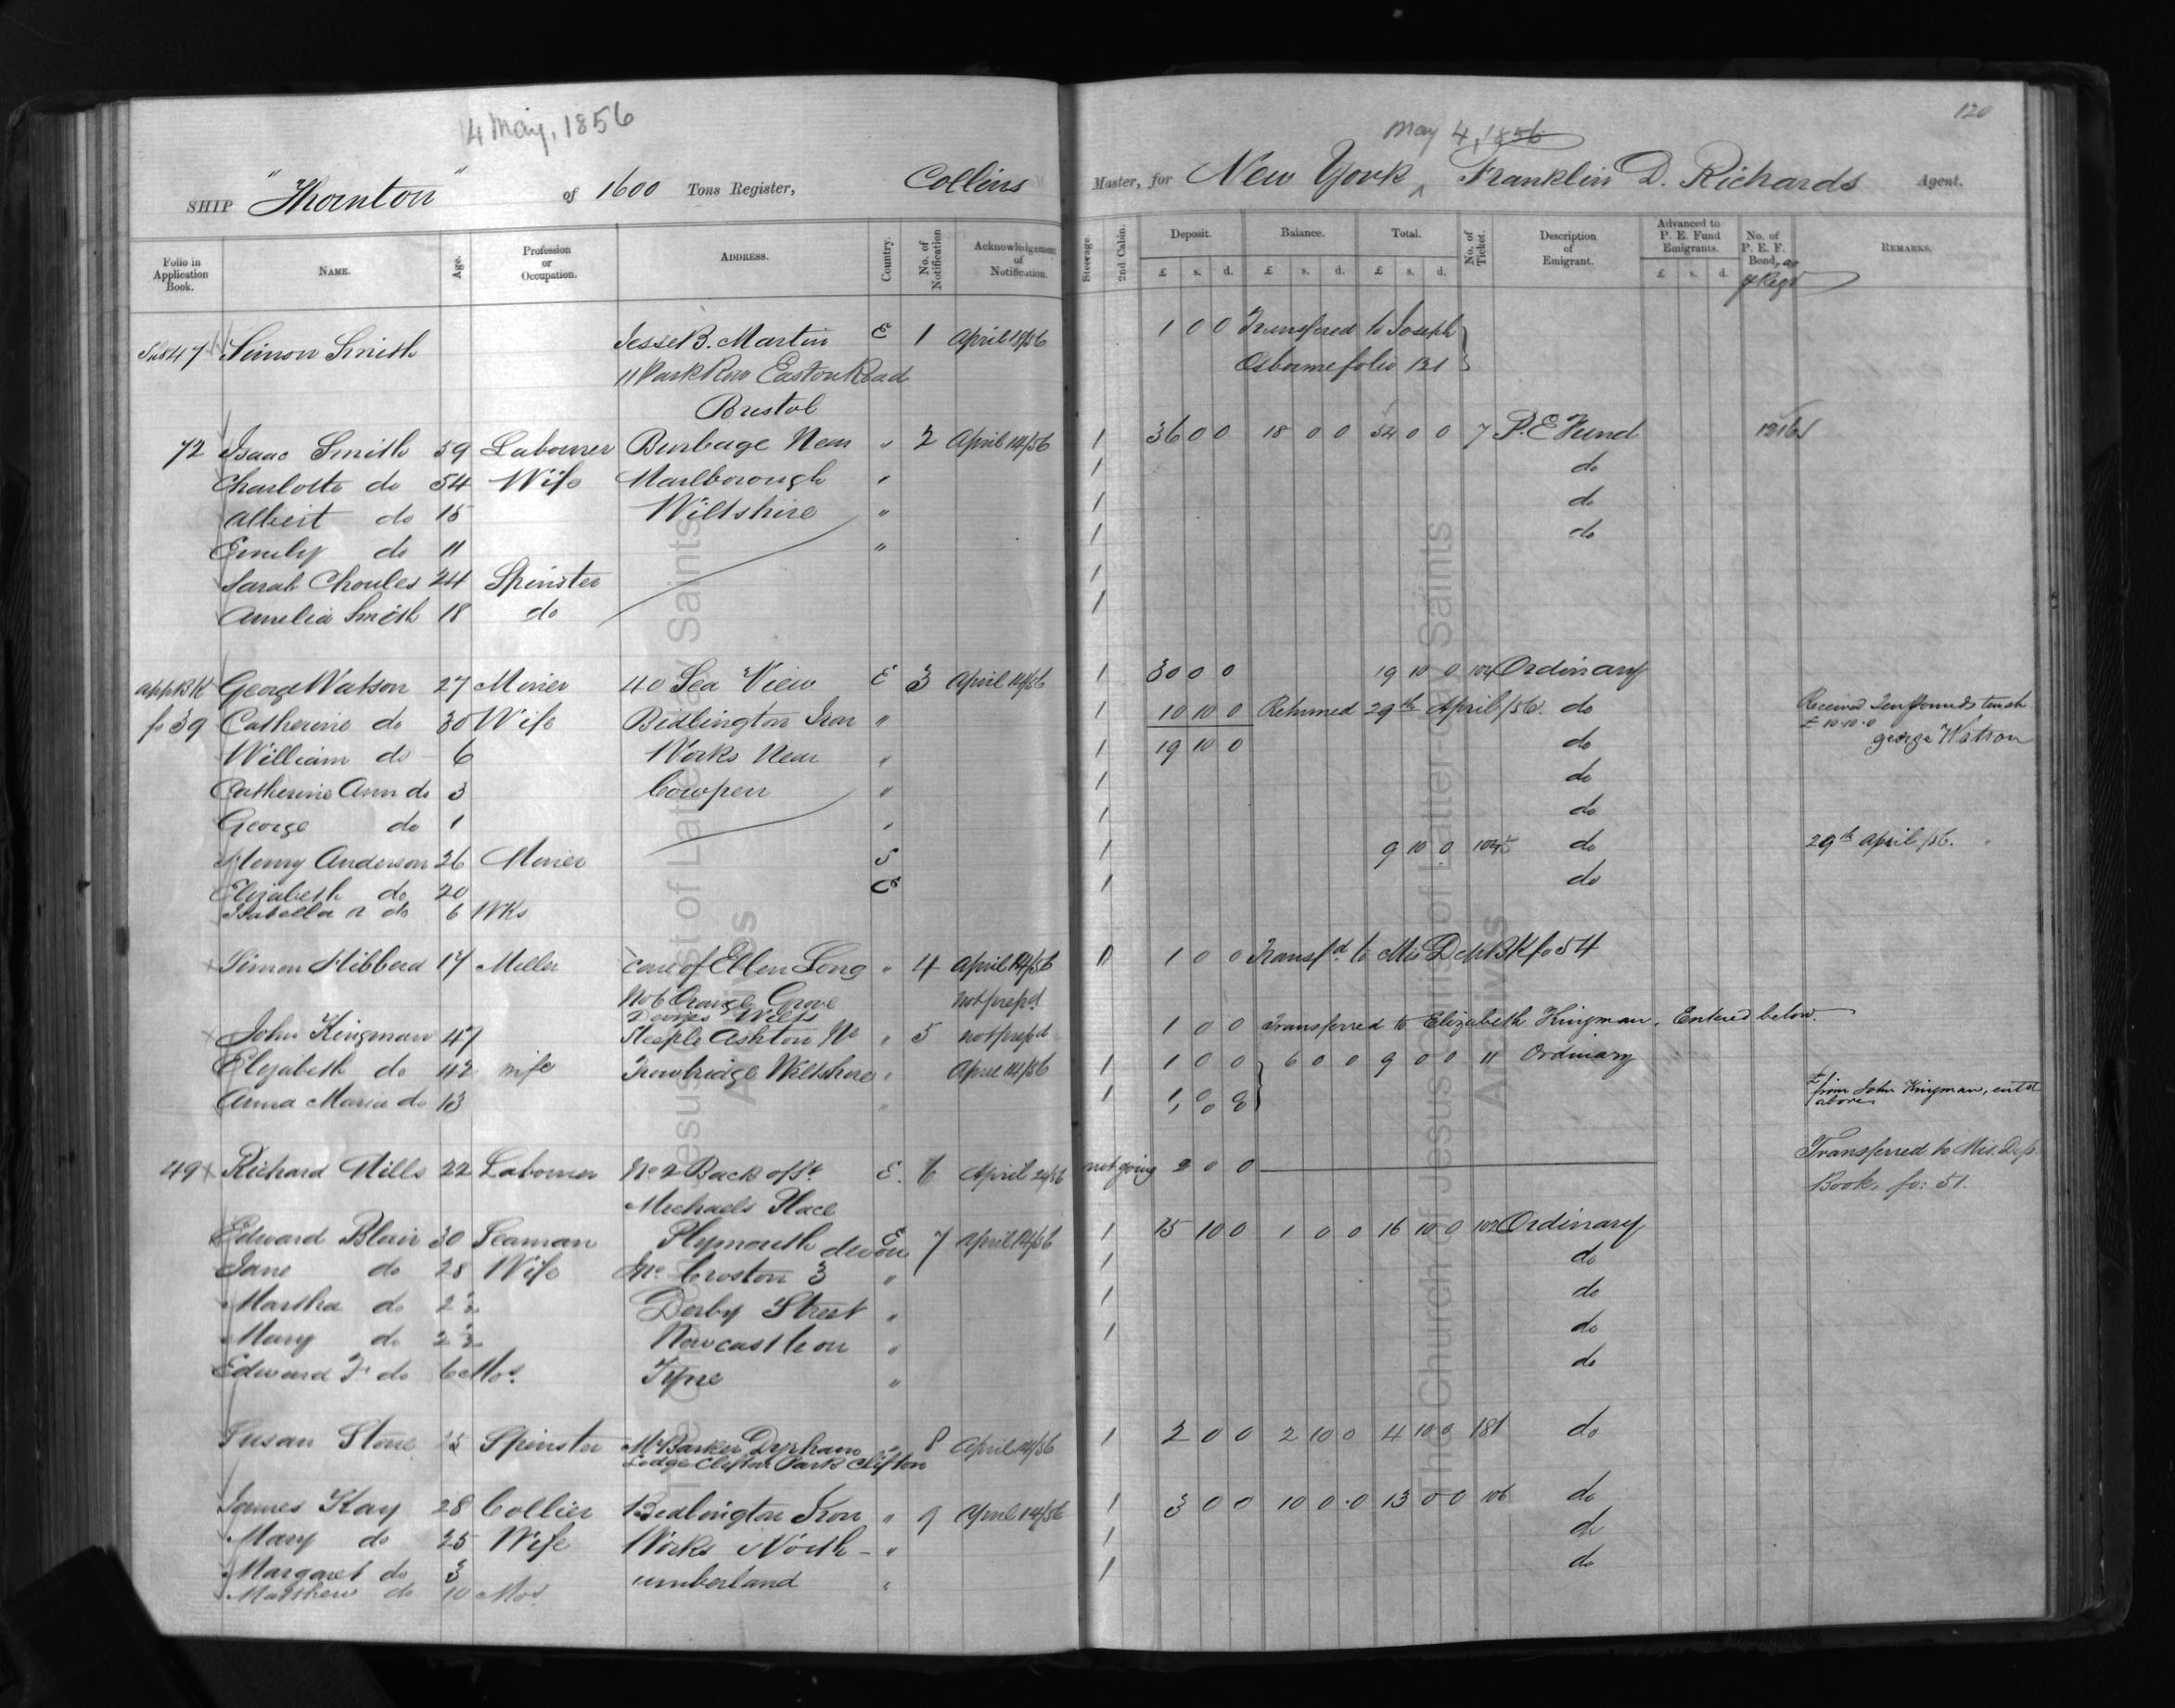 4 May, 1856
May 4, 1856
120
SHIP "Thornton" of 1600 Tons Register, Collins Master, for New York ^ Franklin D. Richards Agent.
Folio in Application Book. NAME. Age. Profession or Occupation. ADDRESS. Country. No. of Notification Acknowledgement of Notification. Steerage. 2nd Cabin. Deposit. £ s. d. Balance. £ s. d. Total. £ s. d. No. of Ticket. Description of Emigrant. Advanced to P. E. Fund Emigrants. £ s. d. No. of P. E. F. Bond, REMARKS.
47 Simon Smith Jesse B. Martin E 1 April 18/56 1 0 0 Transfered to Joseph
11 Park Row Easton Road Osborne folio 121
Bristol
72 Isaac Smith 59 Labourer Burbage Near " 2 April 14/56 1 36 0 0 18 0 0 54 0 0 7 P. E Fund
Charlotte do 54 Wife Marlborough " 1 do
Albert do 15 Wiltshire " 1 do
Emily do 11 " 1 do
Sarah Choules 24 Spinster 1
Amelia Smith 18 do 1
App BK George Watson 27 Miner 40 Sea View E 3 April 14/56 1 30 0 0 19 10 0 104 Ordinary
fo 39 Catherine do 30 Wife Bidlington Iron " 1 10 10 0 Returned 29th April/56. do Received Ten Pounds ten sh
£10.10.0
William do 6 Works Near " 1 19 10 0 do george Watson
Catherine Ann do 3 Cowpen " 1 do
George do 1 " 1 do
Henry Anderson 26 Miner S 1 9 10 0 do 29th April/56.
Elizabeth do 20 E 1 do
Isabella A do 6 Wks
Simon Hibberd 17 Miller care of Ellen Long " 4 April 14/56 1 0 0 Transfd. to Mis Dep BK fo 54
No 6 Orange Grove not prepd
Devizes Wilts
John Kingman 47 Steeple Ashton Nr " 5 not prepd 1 0 0 Transferred to Elizabeth Kingman. Entered below.
Elizabeth do 42 wife Trowbridge Wiltshire " April 14/56 1 1 0 0 6 0 0 9 0 0 11 Ordinary
Anna Maria do 13 " 1 from John Kingman, entd above
49 Richard Mills 22 Labourer No 2 Back of St. E. 6 April 24/56 not going 2 0 0 Transferred to Mis. Dep.
Michaels Place Book, fo: 51.
Edward Blair 30 Seaman Plymouth devon E 7 April 14/56 1 15 10 0 1 0 0 16 10 0 102 Ordinary
Jane do 28 Wife Mr Croston 3 " 1 do
Martha do 2½ Derby Street " 1 do
Mary do 2½ Newcastle on " 1 do
Edward F do 6 Mos. Tyne " do
Susan Stone 25 Spinster Mr Barker Dyrham " 8 April 14/56 1 2 0 0 2 10 0 4 10 0 181 do
Lodge Clifton Park Clifton
James Kay 28 Collier Bedlington Iron " 9 April 14/56 1 3 0 0 10 0 0 13 0 0 106 do
Mary do 25 Wife Works North- " 1 do
Margaret do 3 umberland " 1 do
Matthew do 10 Mos
The Church of Jesus Christ of Latter-day Saints
Archives
The Church of Jesus Christ of Latter-day Saints
Archives